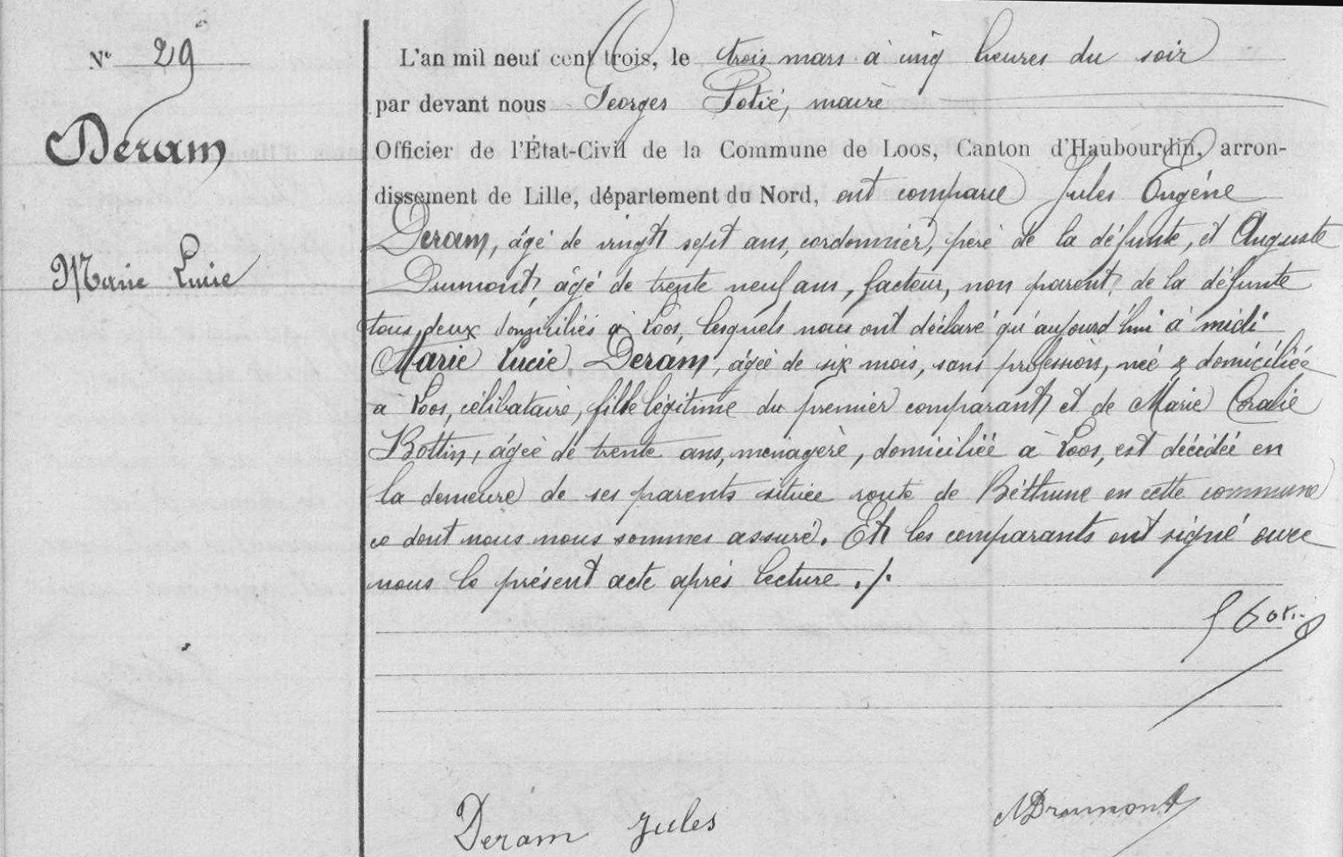 N° 29
Deram
Marie Lucie
L'an mil neuf cent trois, le trois mars à cinq heures du soir
par devant nous Georges Potié, maire
Officier de l'État-Civil de la Commune de Loos, Canton d'Haubourdin, arron-
dissement de Lille, département du Nord, ont comparu Jules Eugène
Deram, âgé de vingt sept ans, cordonnier, père de la défunte, et Auguste
Dumont, âgé de trente neuf ans, facteur, non parent de la défunte
tous deux domiciliés à Loos, lesquels nous ont déclaré qu'aujourd'hui à midi
Marie Lucie Deram, âgée de six mois, sans profession, née & domiciliée
à Loos, célibataire, fille légitime du premier comparant et de Marie Coralie
Bottin, âgée de trente ans, ménagère, domiciliée à Loos, est décédée en
la demeure de ses parents située route de Béthune en cette commune
ce dont nous nous sommes assuré. Et les comparants ont signé avec
nous le présent acte après lecture ./.
Deram Jules